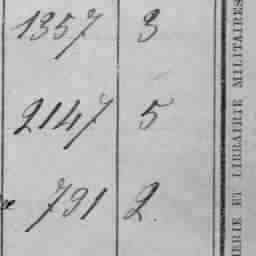 1357 3
2147 5
791 2.
ERIE ET LIBRAIRIE MILITAIRES